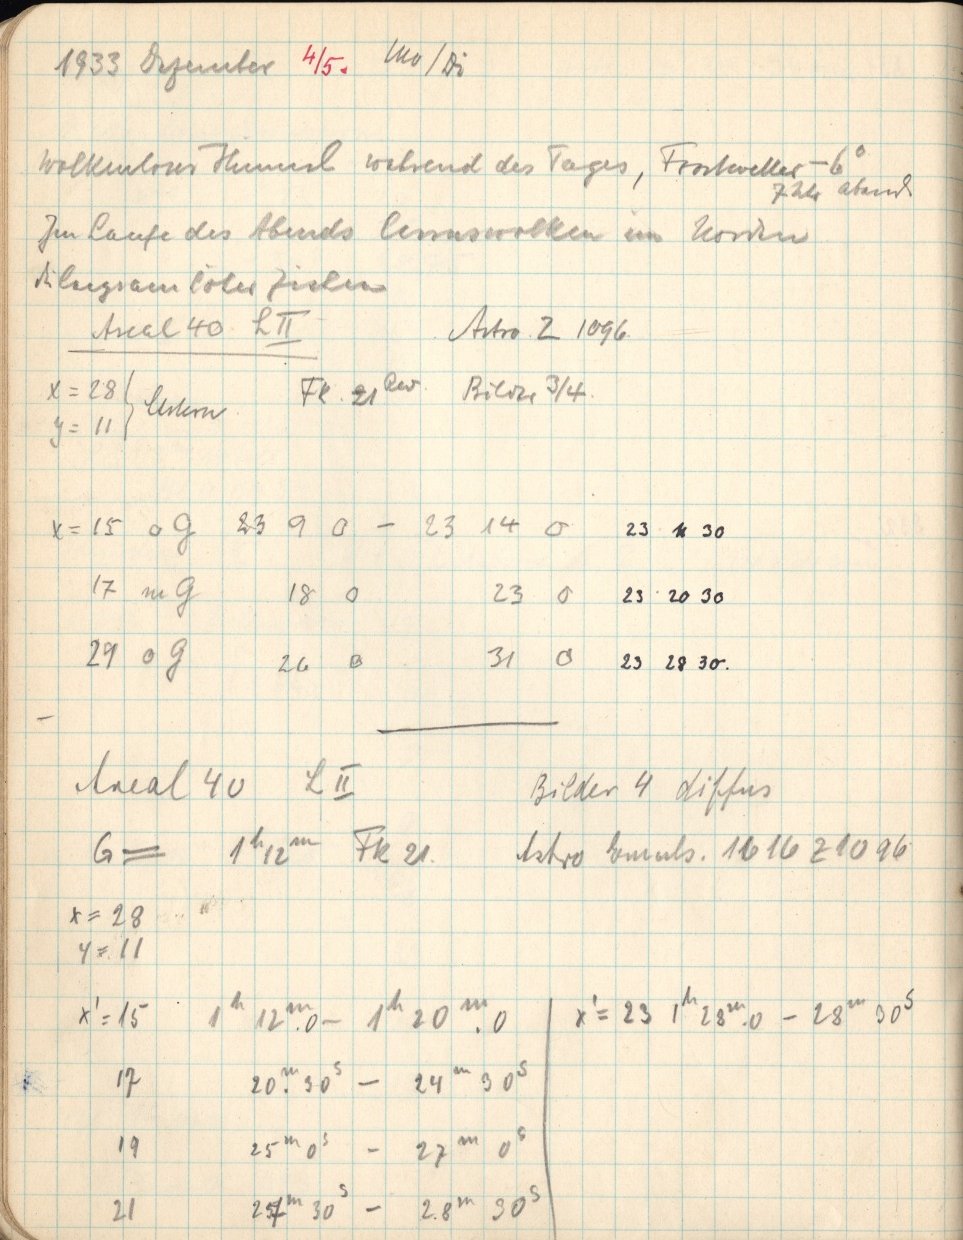 1933 Dezember 4/5. Mo/Di
Wolkenloser Himmel während des Tages, Frostwetter -6°
7 Uhr abends
Im Laufe des Abends Cirruswolken im Norden
die langsam höher ziehen
Areal 40 L II Astro Z 1096
x = 28
y = 11
Fk. 21 Bilder 3/4.
x = 15 oG 23 9 0 - 23 14 0 23 11 30
17 mG 18 0 23 0 23 20 30
29 oG 26 0 31 0 23 28 30.
Areal 40 L II Bilder 4 diffus
G = 1h 12m Fk 21. Astro Emuls. 1616 Z 1096
x = 28
y = 11
x' = 15 1h 12m.0 - 1h 20m.0 x' = 23 1h 28m.0 - 28m 30s
17 20m.30s - 24m 30s
19 25m 0s - 27m 0s
21 27m 30s - 28m 30s